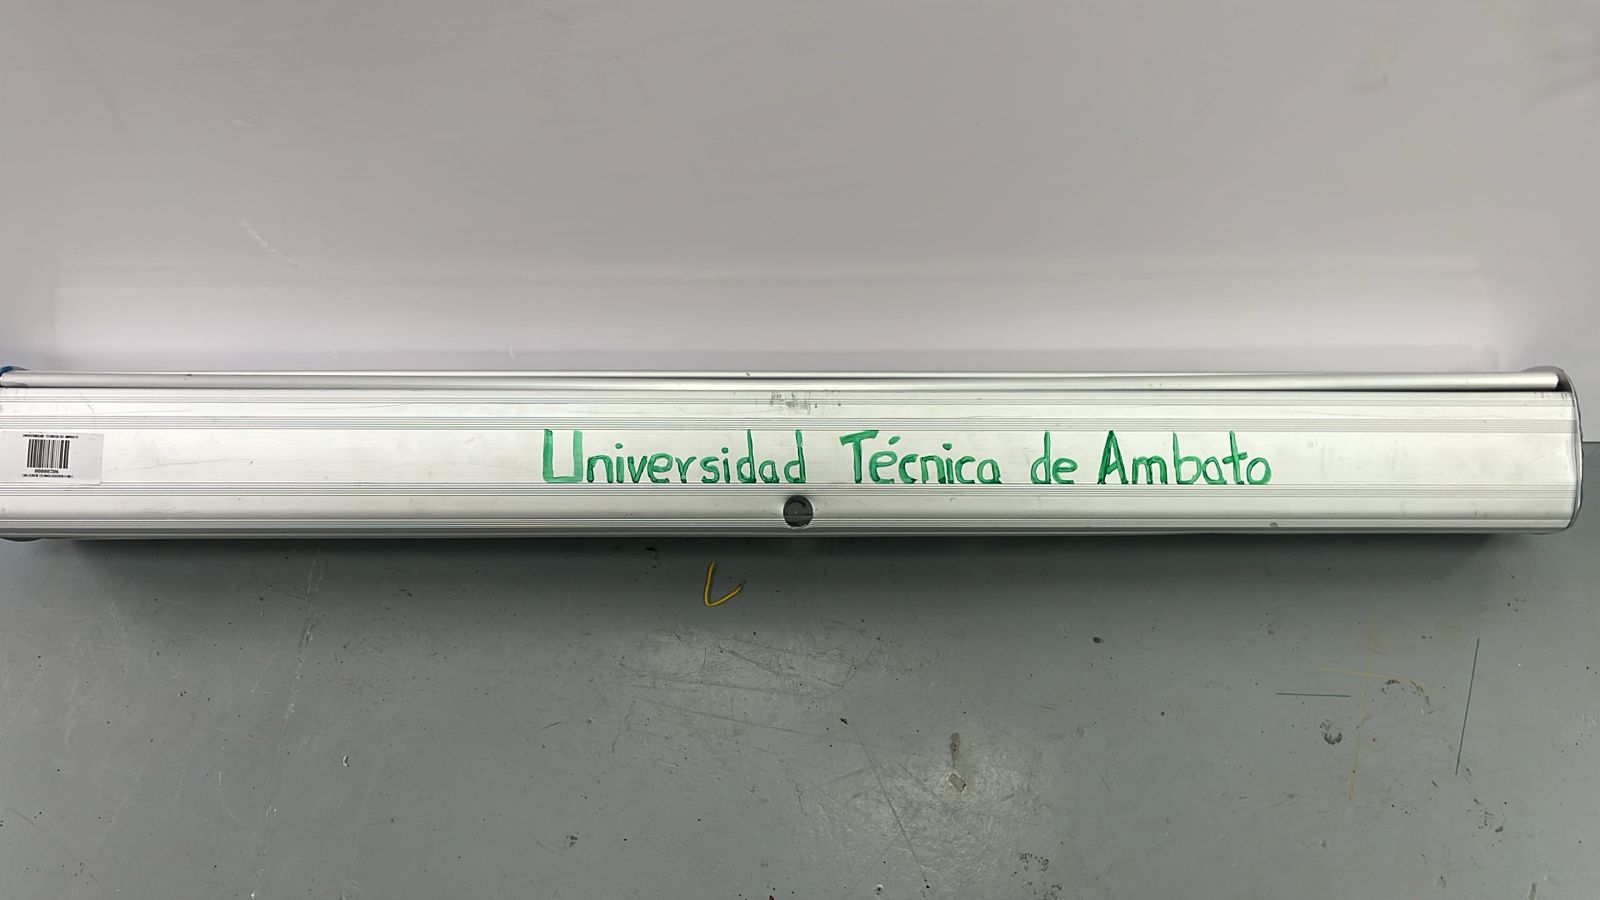 Universidad Técnica de Ambato
UNIVERSIDAD TECNICA DE AMBATO